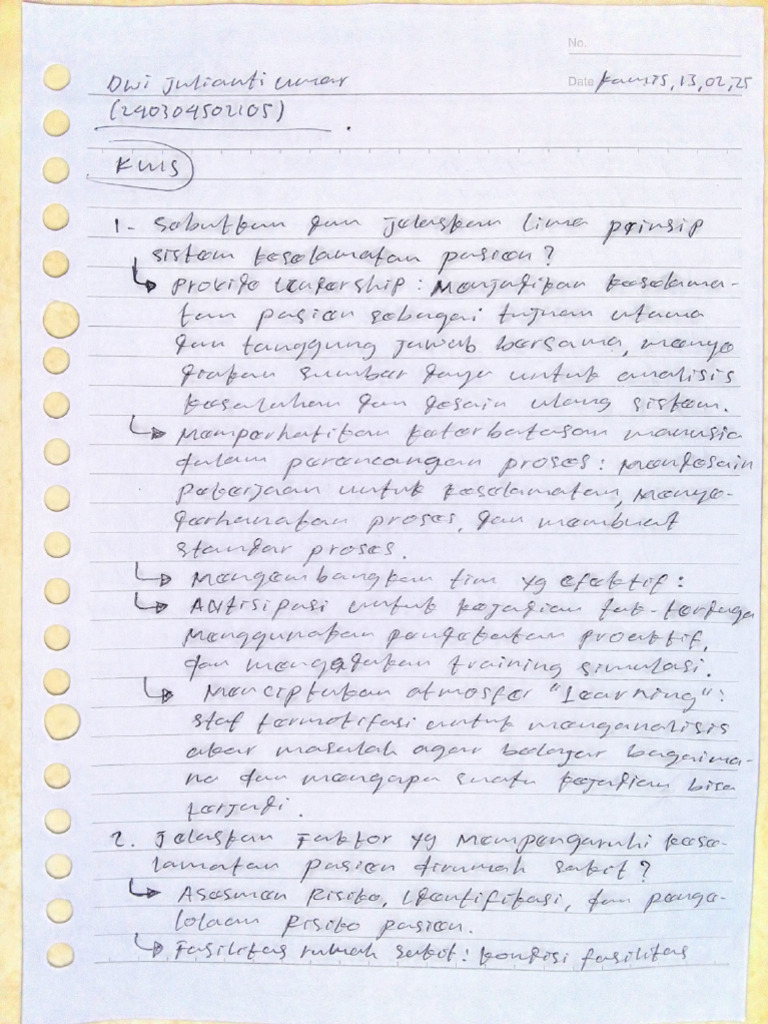 No.
Dwi Julianti umar
Date Kamis, 13, 02, 25
(240304502105)
KUIS
1. Sebutkan dan jelaskan lima prinsip
sistem keselamatan pasien?
↳ Provide leadership : Menjadikan keselama-
tan pasien sebagai tujuan utama
dan tanggung jawab bersama, menye
diakan sumber daya untuk analisis
kesalahan dan desain ulang sistem.
↳ Memperhatikan keterbatasan manusia
dalam perancangan proses : Mendesain
pekerjaan untuk keselamatan, menye-
derhanakan proses, dan membuat
standar proses.
↳ Mengembangkan tim yg efektif :
↳ Antisipasi untuk kejadian tak-terduga
menggunakan pendekatan proaktif,
dan mengadakan training simulasi.
↳ Menciptakan atmosfer "Learning" :
staf termotifasi untuk menganalisis
akar masalah agar belajar bagaima-
na dan mengapa suatu kejadian bisa
terjadi.
2. Jelaskan Faktor yg Mempengaruhi kese-
lamatan pasien dirumah sakit?
↳ Asesmen Risiko, Identifikasi, dan penge-
lolaan Risiko pasien.
↳ Fasilitas rumah sakit : kondisi fasilitas